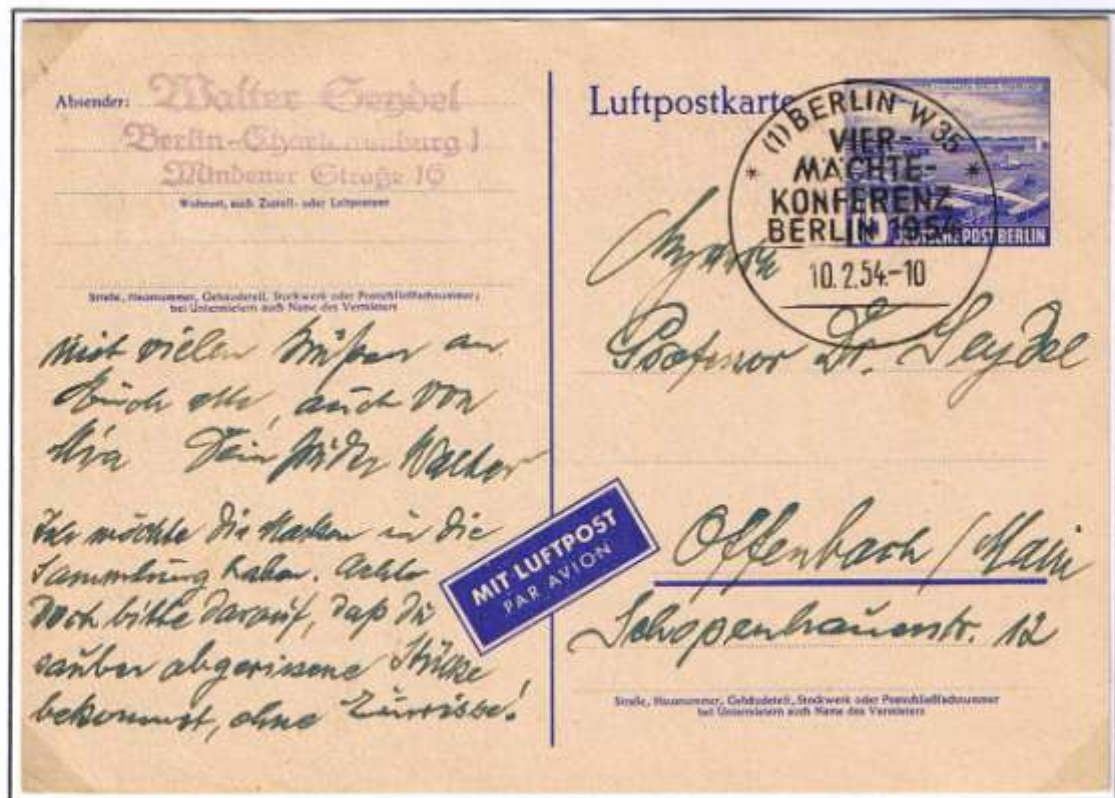 Absender: Walter Seydel
Berlin-Charlottenburg 1
Mindener Straße 16
Wohnort, auch Zustell- oder Leitpostamt
Straße, Hausnummer, Gebäudeteil, Stockwerk oder Postschließfachnummer;
bei Untermietern auch Name des Vermieters
mit vielen Grüßen an
Euch alle, auch von
Dein Walter
Ich möchte die Marken in die
Sammlung haben. Achte
doch bitte darauf, daß Du
sauber abgerissene Stücke
bekommst, ohne Einrisse!
Luftpostkarte
(1) BERLIN W 35
VIER-
MÄCHTE-
KONFERENZ
BERLIN 1954
10.2.54.-10
10 DEUTSCHE POST BERLIN
Professor Dr. Seydel
MIT LUFTPOST
PAR AVION
Offenbach / Main
Schopenhauerstr. 12
Straße, Hausnummer, Gebäudeteil, Stockwerk oder Postschließfachnummer
bei Untermietern auch Name des Vermieters